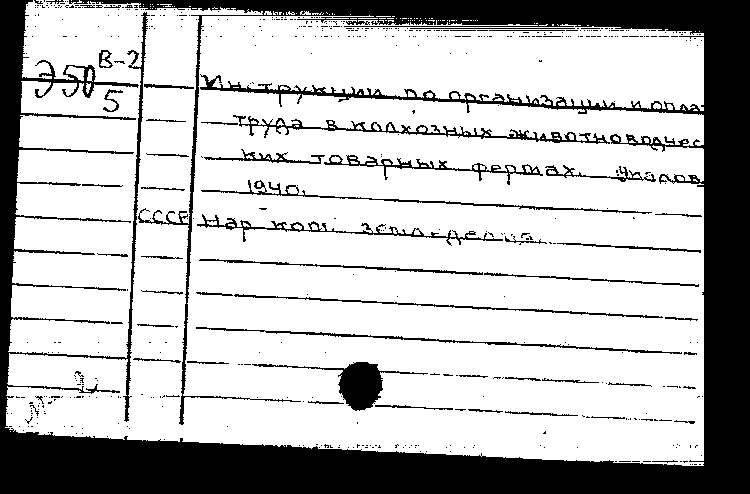 В-2
Э50
5
Инструкции по организации и опла
труда в колхозных животноводчес
ких товарных фермах.
1940.
СССР Нар ком. земледелия.